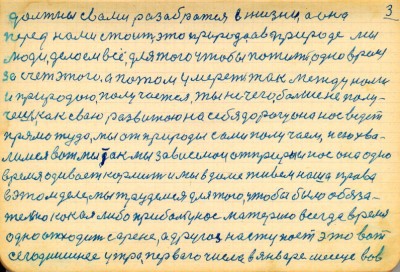 3
должны с вами разабратся в жизни, а она
перед нами стоит, это природа, а в природе мы
люди, делаем всё для того чтобы пожить одно время
за счет этого, а потом умереть так между нами
и природою, получается, ты ничего, больше не полу-
чешь, как сваю развитою на себя дорогу она нас ведет
прямо туда, мы от природы сами получаем, и его хва-
лимся вот мы так мы зависемы от природы и нас она одно
время одивает кормит и мы в доме живем наша права
в этом деле, мы трудемся для того, чтобы было обяза-
тельно какая либо прибаль у нас материю всегда время
одно отходит с арене, а другое наступает это вот
сегодняшнее утро, первого числа в январе месеце вов